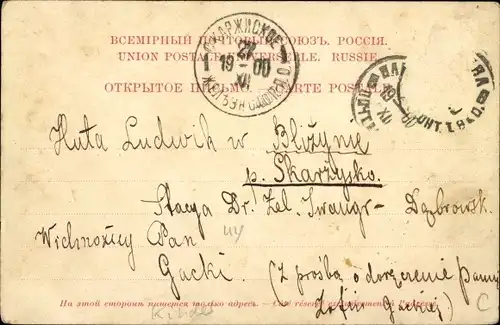 ВСЕМІРНЫЙ ПОЧТОВЫЙ СОЮЗЪ. РОССІЯ.
UNION POSTALE UNIVERSELLE. RUSSIE.
ОТКРЫТОЕ ПИСЬМО. — CARTE POSTALE.
21
19 00
XII
19 00
XII
Huta Ludwik w Bliżynie
p. Skarżysko.
Stacya Dr. Żel. Iwangr- Dąbrowsk.
Wielmożny Pan
Gacki.
(Z prośbą o doręczenie Panny
Zofii Gackiej)
На этой сторонѣ пишется только адресъ. — Côté réservé exclusivement à l'adresse.
C